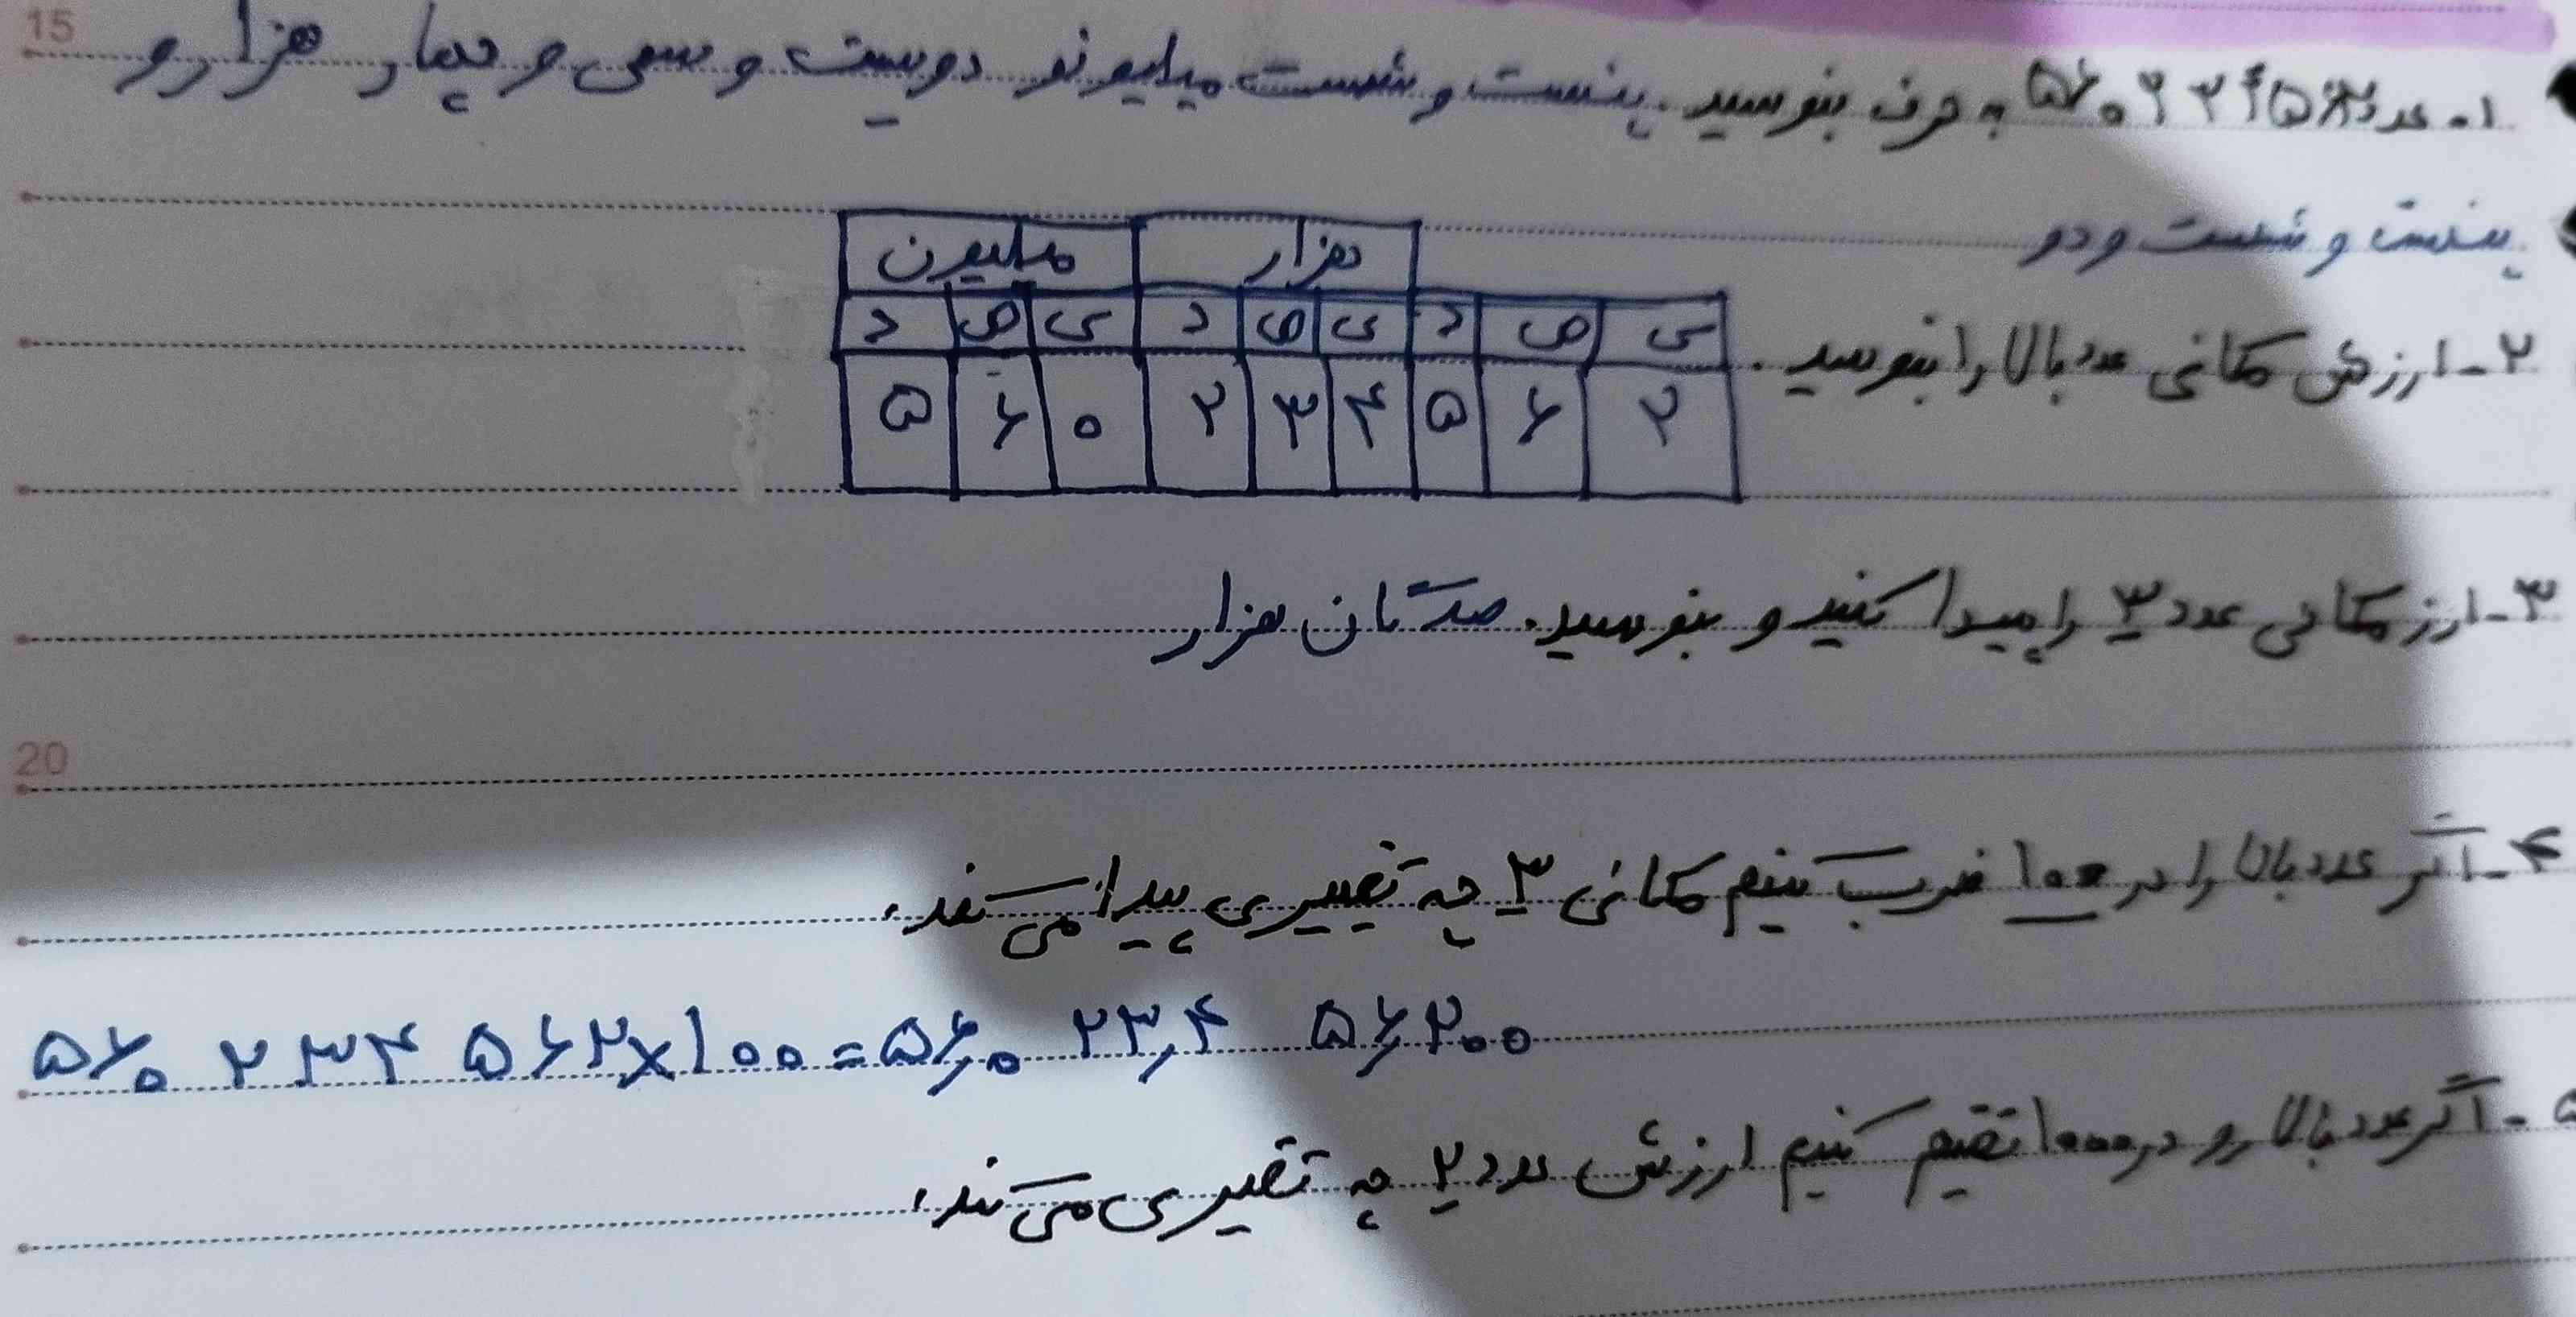 15
۱- عدد ۵۶۰۲۳۴۵۶۲ به حرف بنویسید. پنست و شست میلیونو دویست و سعی و چهار هزار و
پنست و شست و دو
میلیون هزار
د ص ی د ص ی د ص ی
۲- ارزش مکانی عدد بالا را بنویسید.
۵ ۶ ۰ ۲ ۳ ۴ ۵ ۶ ۲
۳- ارز مکانی عدد ۳ را پیدا کنید و بنویسید. صدتان هزار
20
۴- اگر عدد بالا را در ۱۰۰ ضرب کنیم مکانی ۳ چه تغییری پیدا می‌کند.
۵۶۰ ۲۳۴ ۵۶۲×۱۰۰=۵۶,۰ ۲۳,۴ ۵۶,۲۰۰
۵- اگر عدد بالا رو در ۱۰۰۰ تقیم کنیم ارزش عدد ۲ چه تقیری می‌کند.